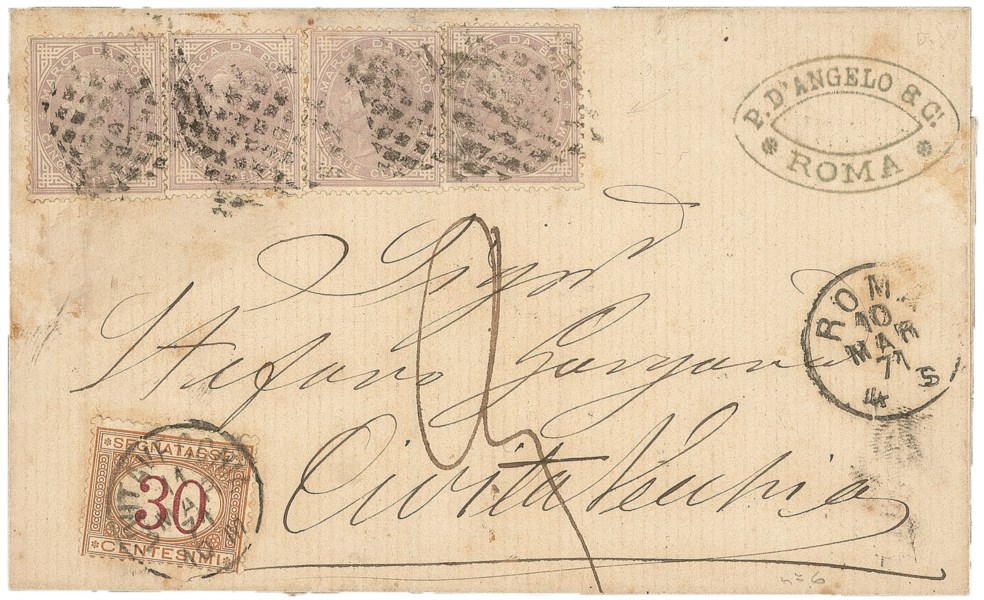 MARCA DA BOLLO
MARCA DA BOLLO
MARCA DA BOLLO
MARCA DA BOLLO
P. D'ANGELO & C.
ROMA
ROMA
10
MAR
71
4 S
Sigor
Stefano
Civita Vecchia
SEGNATASSE
30
CENTESIMI
n=6